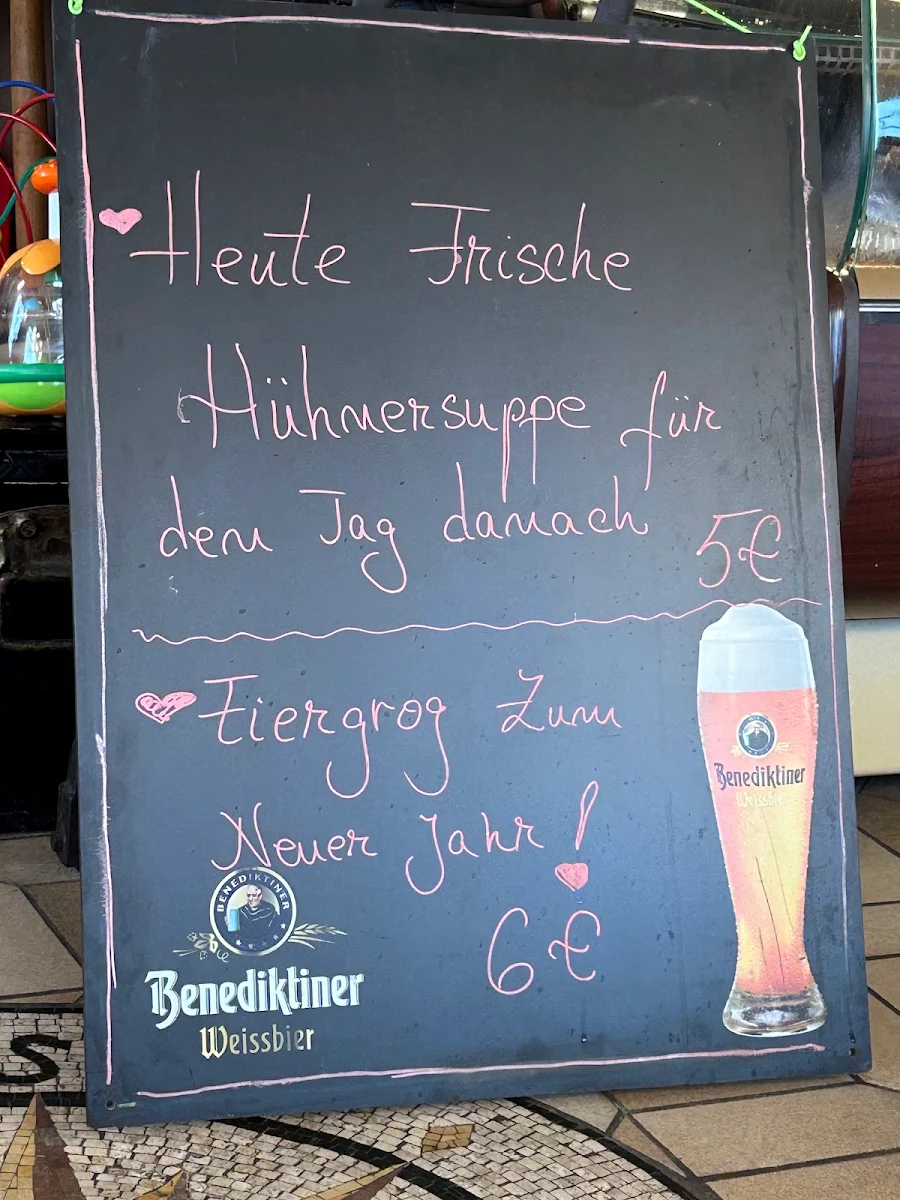 Heute Frische
Hühnersuppe für
den Tag danach 5€
Eiergrog Zum
Neuer Jahr!
6€
BENEDIKTINER
Benediktiner
Weissbier
Benediktiner
Weissbier
S